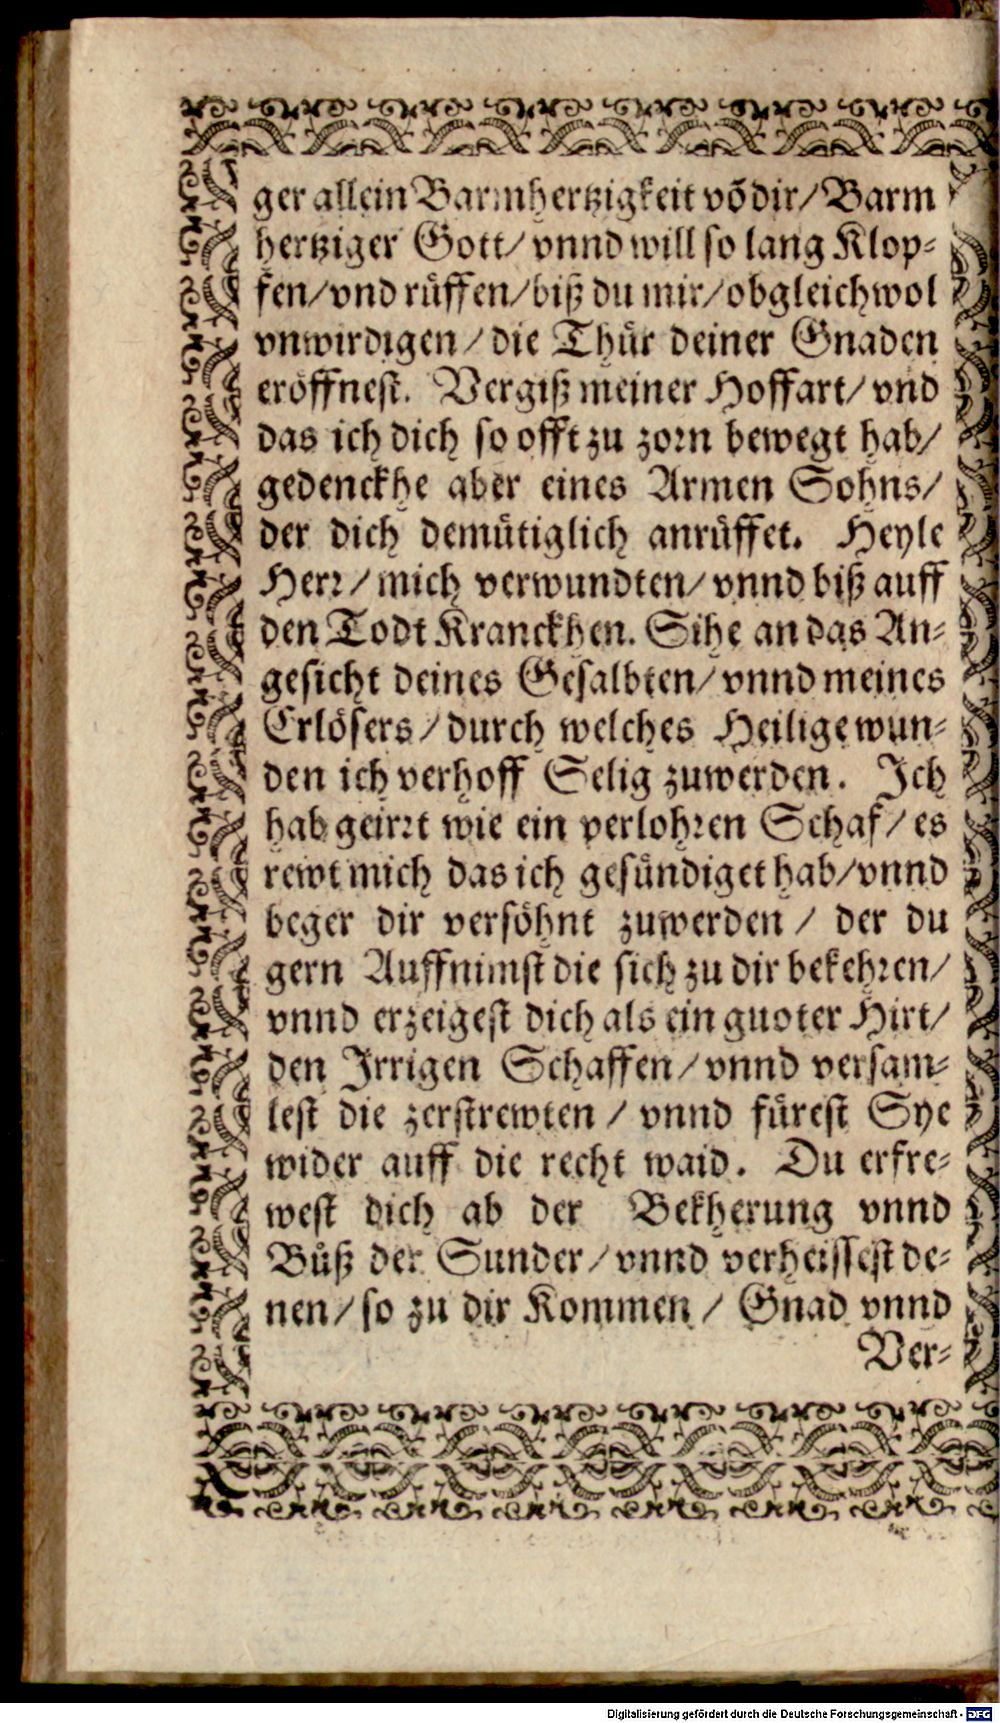 ger allein Barmhertzigkeit võ dir/ Barm
hertziger Gott/ vnnd will so lang Klop-
fen/ vnd ruͤffen/ biß du mir/ obgleichwol
vnwirdigen/ die Thuͤr deiner Gnaden
eroͤffnest. Vergiß meiner Hoffart/ vnd
das ich dich so offt zu zorn bewegt hab/
gedenckhe aber eines Armen Sohns/
der dich demuͤtiglich anruͤffet. Heyle
Herr/ mich verwundten/ vnnd biß auff
den Todt Kranckhen. Sihe an das An-
gesicht deines Gesalbten/ vnnd meines
Erloͤsers/ durch welches Heilige wun-
den ich verhoff Selig zuwerden. Ich
hab geirrt wie ein verlohren Schaf/ es
rewt mich das ich gesuͤndiget hab/ vnnd
beger dir versoͤhnt zuwerden/ der du
gern Auffnimst die sich zu dir bekehren/
vnnd erzeigest dich als ein guoter Hirt/
den Irrigen Schaffen/ vnnd versam-
lest die zerstrewten/ vnnd fuͤrest Sye
wider auff die recht waid. Du erfre-
west dich ab der Bekherung vnnd
Buͤß der Sunder/ vnnd verheissest de-
nen/ so zu dir Kommen/ Gnad vnnd
Ver-
Digitalisierung gefördert durch die Deutsche Forschungsgemeinschaft - DFG